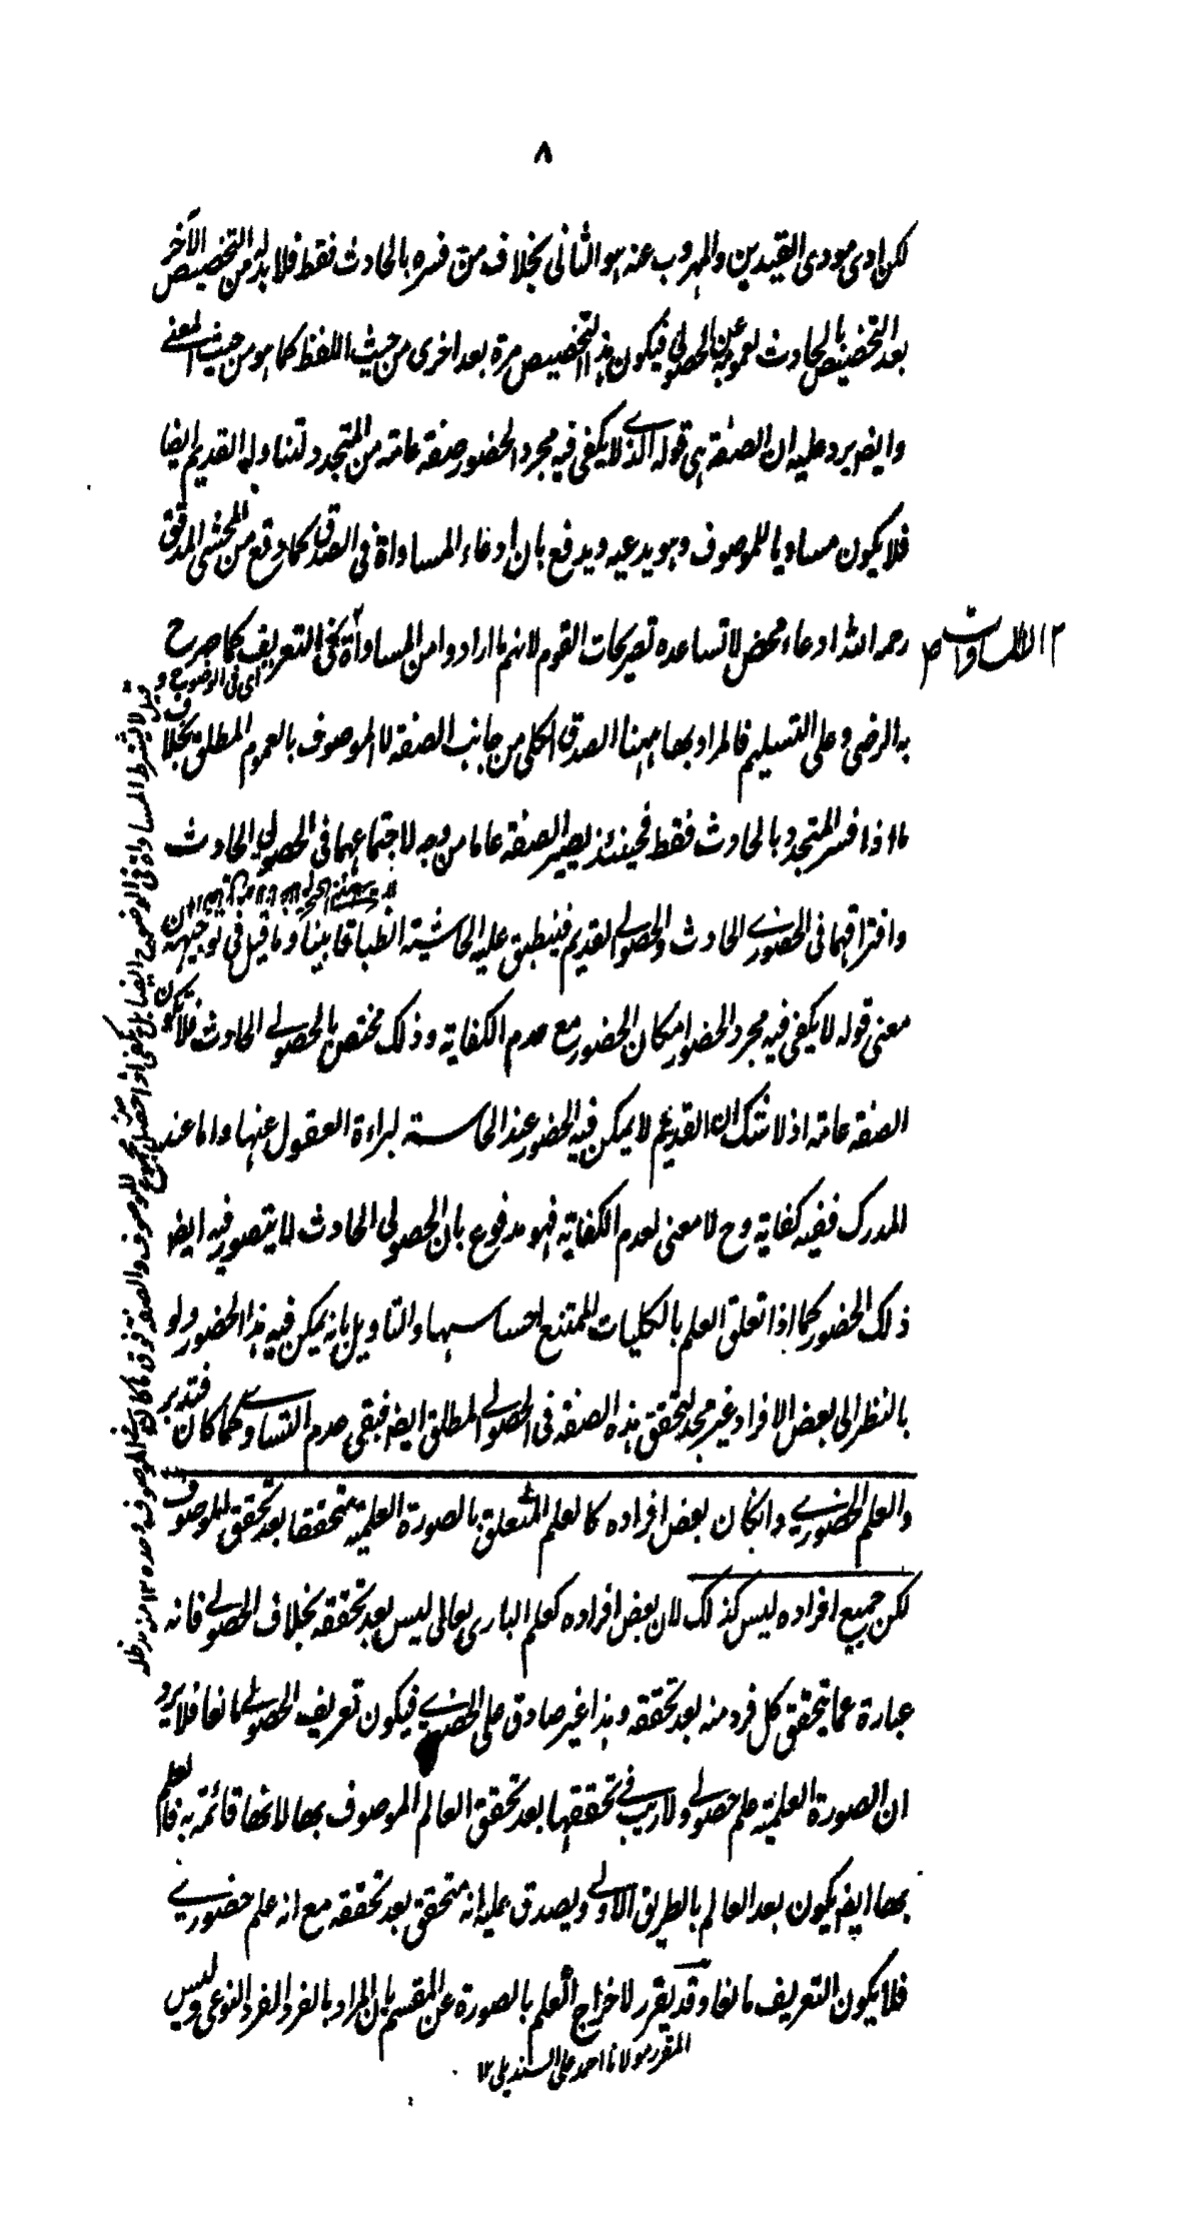 ٨
لكن ادى مودى القيدين والمهروب عنه هو الثانى بخلاف من فسره بالحادث فقط فلا بد له من التخصيص الآخر
بعد التخصيص بالحادث لعمومه عن الحصولي فيكون هذا التخصيص مرة بعد اخرى من حيث اللفظ كما هو من حيث المعنے
وايضا يرد عليه ان الصفة هى قوله الذے لا يكفى فيه مجرد الحضور صفة عامة من المتجدد لتناوله القديم ايضا
فلا يكون مساويا للموصوف وهو يدعيه ويدفع بان ادعاء المساواة فى الصدق كما وقع من المحشى المدقق
رحمه الله ادعاء محض لا تساعده تصريحات القوم لانهم ما ارادوا من المساواة فى التعريف كما صرح
اى فى الوضوح
به الرضى وعلى التسليم فالمراد بها ههنا الصدق الكلى من جانب الصفة لا الموصوف بالعموم المطلق بخلاف
ما اذا فسر المتجدد بالحادث فقط فحينئذ يصير الصفة عاما من وجه لاجتماعهما فى الحصولي الحادث
وافتراقهما فى الحضورے الحادث والحصولے القديم فينطبق عليه الحاشية انطباقا بينا وما قيل فى توجيهه ان
معنى قوله لا يكفى فيه مجرد الحضور امكان الحضور مع عدم الكفاية وذلك مختص بالحصولے الحادث فلا يكون
الصفة عامة اذ لا شك ان القديم لا يمكن فيه الحضور عند الحاسة لبراءة العقول عنها واما عند
المدرك ففيه كفاية وح لا معنى لعدم الكفاية فهو مدفوع بان الحصولى الحادث لما يتصور فيه ايضا
ذلك الحضور كما اذا تعلق العلم بالكليات الممتنع احساسها والتاويل بانه يمكن فيه هذا الحضور ولو
بالنظر الى بعض الافراد غير مجد لتحقق هذه الصفة فى الحصولے المطلق ايضا فبقى عدم التساوے كما كان فتدبر
والعلم الحضورے وان كان بعض افراده كالعلم المتعلق بالصورة العلمية متحققا بعد تحقق الموصوف
لكن جميع افراده ليس كذلك لان بعض افراده كعلم البارى تعالى ليس بعد تحققه بخلاف الحصولے فانه
عبارة عما يتحقق كل فرد منه بعد تحققه وهذا غير صادق على الحضورے فيكون تعريف الحصولے مانعا فلا يرد
ان الصورة العلمية علم حصولے ولا ريب فے تحققها بعد تحقق العالم الموصوف بها لانها قائمة به فالعلم
بها ايضا يكون بعد العالم بالطريق الاولے ويصدق عليه انه متحقق بعد تحققه مع انه علم حضورے
فلا يكون التعريف مانعا وقد يقرر لاخراج العلم بالصورة عن المقسم بان المراد بالفرد الفرد النوعى وليس
المقرر مولانا احمد على السنديلى ١٢